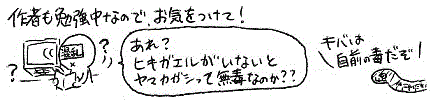 作者も勉強中なので、お気をつけて!
?
?
?
あれ?
ヒキガエルがいないと
ヤマカガシって無毒なのか??
キバは
自前の毒だぞ!